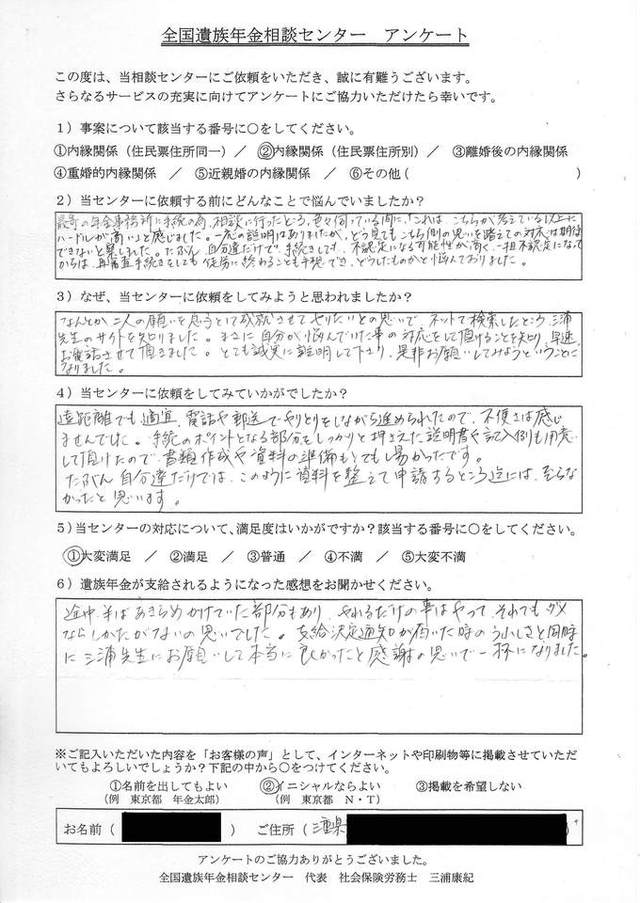 全国遺族年金相談センター　アンケート
この度は、当相談センターにご依頼をいただき、誠に有難うございます。
さらなるサービスの充実に向けてアンケートにご協力いただけたら幸いです。
1）事案について該当する番号に○をしてください。
①内縁関係（住民票住所同一）／　②内縁関係（住民票住所別）／　③離婚後の内縁関係
④重婚的内縁関係　／　⑤近親婚の内縁関係　／　⑥その他（　　　　　　　　）
2）当センターに依頼する前にどんなことで悩んでいましたか？
最寄の年金事務所に手続の為、相談に行ったところ、色々伺っている間に、「これは こちらが考えている以上に
ハードルが高い」と感じました。一応の説明はありましたが、どう見てもこちら側の思いを踏まえての対応は期待
できないと思えました。たぶん、自分達だけで手続きしても、不認定になる可能性が高く、一担不認定になって
からは、再審査手続きをしても徒労に終わることも予想でき、どうしたものかと悩んでおりました。
3）なぜ、当センターに依頼をしてみようと思われましたか？
なんとか二人の願いを思うとして成就させてやりたいとの思いで、ネットで検索したところ、三浦
先生のサイトを知りました。まさに自分が悩んでいた事の対応をして頂けることを知り、早速
お電話させて頂きました。とても誠実に説明して下さり、是非お願いしてみようということに
なりました。
4）当センターに依頼をしてみていかがでしたか？
遠距離でも適宜、電話や郵送でやりとりをしながら進められたので、不便さは感じ
ませんでした。手続のポイントとなる部分をしっかりと押さえた説明書や記入例も用意
して頂けたので、書類作成や資料の準備もとてもし易かったです。
たぶん自分達だけでは、このように資料を整えて申請するところ迄には、至らな
かったと思います。
5）当センターの対応について、満足度はいかがですか？該当する番号に○をしてください。
①大変満足　／　②満足　／　③普通　／　④不満　／　⑤大変不満
6）遺族年金が支給されるようになった感想をお聞かせください。
途中、半ばあきらめかけていた部分もあり、やれるだけの事はやって、それでもダメ
ならしかたがないの思いでした。支給決定通知が届いた時のうれしさと同時
に三浦先生にお願いして本当に良かったと感謝の思いで一杯になりました。
※ご記入いただいた内容を「お客様の声」として、インターネットや印刷物等に掲載させていただ
いてもよろしいでしょうか？下記の中から○をつけてください。
①名前を出してもよい　②イニシャルならよい　③掲載を希望しない
（例　東京都　年金太郎）　（例　東京都　N・T）
お名前（　　　　）　ご住所（三重県　　　　）
アンケートのご協力ありがとうございました。
全国遺族年金相談センター　代表　社会保険労務士　三浦康紀